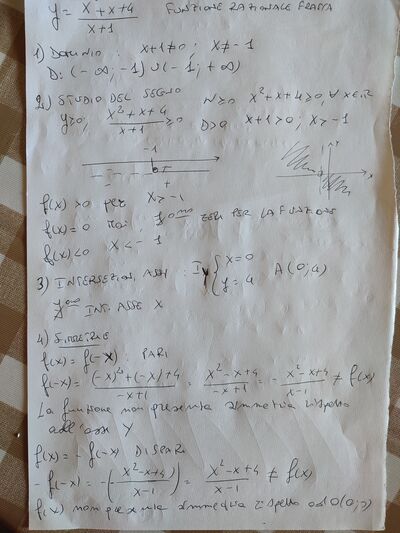 y = x²+x+4 / x+1 FUNZIONE RAZIONALE FRATTA
1) DOMINIO : x+1≠0 ; x≠-1
D: (-∞; -1) ∪ (-1; +∞)
2) STUDIO DEL SEGNO N≥0 x²+x+4≥0, ∀ x∈ℝ
y≥0; x²+x+4 / x+1 ≥0 D>0 x+1>0; x>-1
-1
+
f(x) >0 per x>-1
f(x) = 0 mai ; ZERI PER LA FUNZIONE
f(x)<0 x<-1
3) INTERSEZIONI ASSI : Iy { x=0 y=4 A(0;4)
INT. ASSE X
4) SIMMETRIE
f(x) = f(-x) PARI
f(-x) = (-x)²+(-x)+4 / -x+1 = x²-x+4 / -x+1 = - x²-x+4 / x-1 ≠ f(x)
La funzione non presenta simmetria rispetto
all'asse Y
f(x) = -f(-x) DISPARI
-f(-x) = -(- x²-x+4 / x-1) = x²-x+4 / x-1 ≠ f(x)
f(x) non presenta simmetria rispetto ad O(0;0)